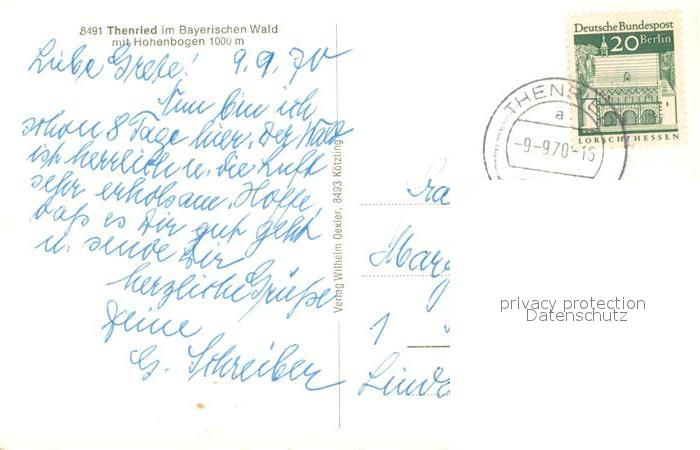 8491 Thenried im Bayerischen Wald
mit Hohenbogen 1000 m
Liebe Grete! 9.9.70
Nun bin ich
schon 8 Tage hier. Der Wald
ist herrlich u. die Luft
sehr erholsam. Hoffe
daß es Dir gut geht
u. sende Dir
herzliche Grüße
Deine
G. Schreiber
Verlag Wilhelm Oexler, 8493 Kötzting
Deutsche Bundespost
20 Berlin
LORSCH/HESSEN
THENRIED
a
-9-9.70-16
1
privacy protection
Datenschutz